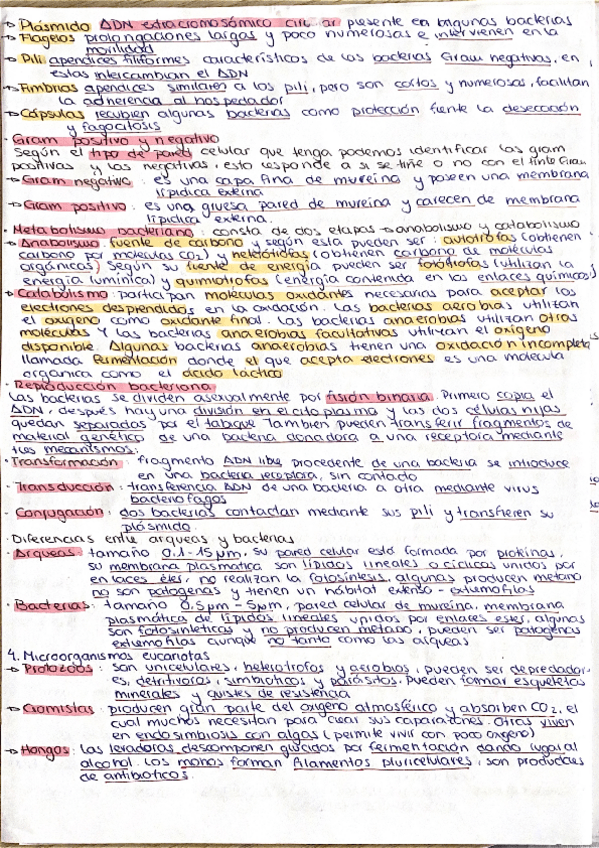 → Plásmido ADN extracromosómico circ ar presente en algunas bacterias
→ Flagelos prolongaciones largas y poco numerosas e intervienen en la
movilidad
→ Pili apendices filiformes característicos de las bacterias Gram negativas, en
estas intercambian el ADN
→ Fimbrias apendices similares a los pili, pero son cortos y numerosas, facilitan
la adherencia al hospedador
→ Cápsulas recubren algunas bacterias como protección frente la desecación
y fagocitosis
· Gram positivo y negativo
Según el tipo de pared celular que tenga podemos identificar las gram
positivas y las negativas, esto responde a si se tiñe o no con el tinte Gram
→ Gram negativo : es una capa fina de mureína y poseen una membrana
lipídica externa
→ Gram positivo : es una gruesa pared de mureína y carecen de membrana
lipídica externa.
· Metabolismo bacteriano : consta de dos etapas → anabolismo y catabolismo
→ Anabolismo : fuente de carbono y según esta pueden ser : autótrofas (obtienen
carbono por moleculas CO2) y heterótrofas (obtienen carbono de moléculas
orgánicas) Según su fuente de energía pueden ser fotótrofas (utilizan la
energía lumínica) y quimiotrofas (energía contenida en los enlaces químicos)
→ Catabolismo : participan moléculas oxidantes necesarias para aceptar los
electrones desprendidos en la oxidación. Las bacterias aerobias utilizan
el oxígeno como oxidante final. Las bacterias anaerobias utilizan otras
moléculas y las bacterias anaerobias facultativas utilizan el oxígeno
disponible. Algunas bacterias anaerobias tienen una oxidación incompleta
llamada fermentación donde el que acepta electrones es una molécula
orgánica como el ácido láctico
· Reproducción bacteriana
Las bacterias se dividen asexualmente por fisión binaria. Primero copia el
ADN, después hay una división en el citoplasma y las dos células hijas
quedan separadas por el tabique También pueden transferir fragmentos de
material genético de una bacteria donadora a una receptora mediante
tres mecanismos:
· Transformación : fragmento ADN libre procedente de una bacteria se introduce
en una bacteria receptora, sin contacto
· Transducción : transferencia ADN de una bacteria a otra mediante virus
bacteriofagos
· Conjugación : dos bacterias contactan mediante sus pili y transfieren su
plásmido.
· Diferencias entre arqueas y bacterias
· Arqueas : tamaño 0.1-15 μm, su pared celular está formada por proteínas,
su membrana plasmática son lípidos lineales o cíclicos unidos por
enlaces éter, no realizan la fotosíntesis, algunas producen metano
no son patogenas y tienen un hábitat extenso - extremofilos
· Bacterias : tamaño 0.5 μm - 5 μm, pared celular de mureína, membrana
plasmática de lípidos lineales unidos por enlaces ester, algunas
son fotosintéticas y no producen metano, pueden ser patógenas
extremofilos aunque no tanto como las arqueas
4. Microorganismos eucariotas
→ Protozoos : son unicelulares, heterótrofos y aerobios, pueden ser depredador-
es, detritívoros, simbióticos y parásitos. Pueden formar esqueletos
minerales y quistes de resistencia
→ Cromistas : producen gran parte del oxígeno atmosférico y absorben CO2, el
cual muchos necesitan para crear sus caparazones. Otros viven
en endosimbiosis con algas (permite vivir con poco oxígeno)
→ Hongos : las levaduras descomponen glúcidos por fermentación dando lugar al
alcohol. Los mohos forman filamentos pluricelulares, son productores
de antibióticos.